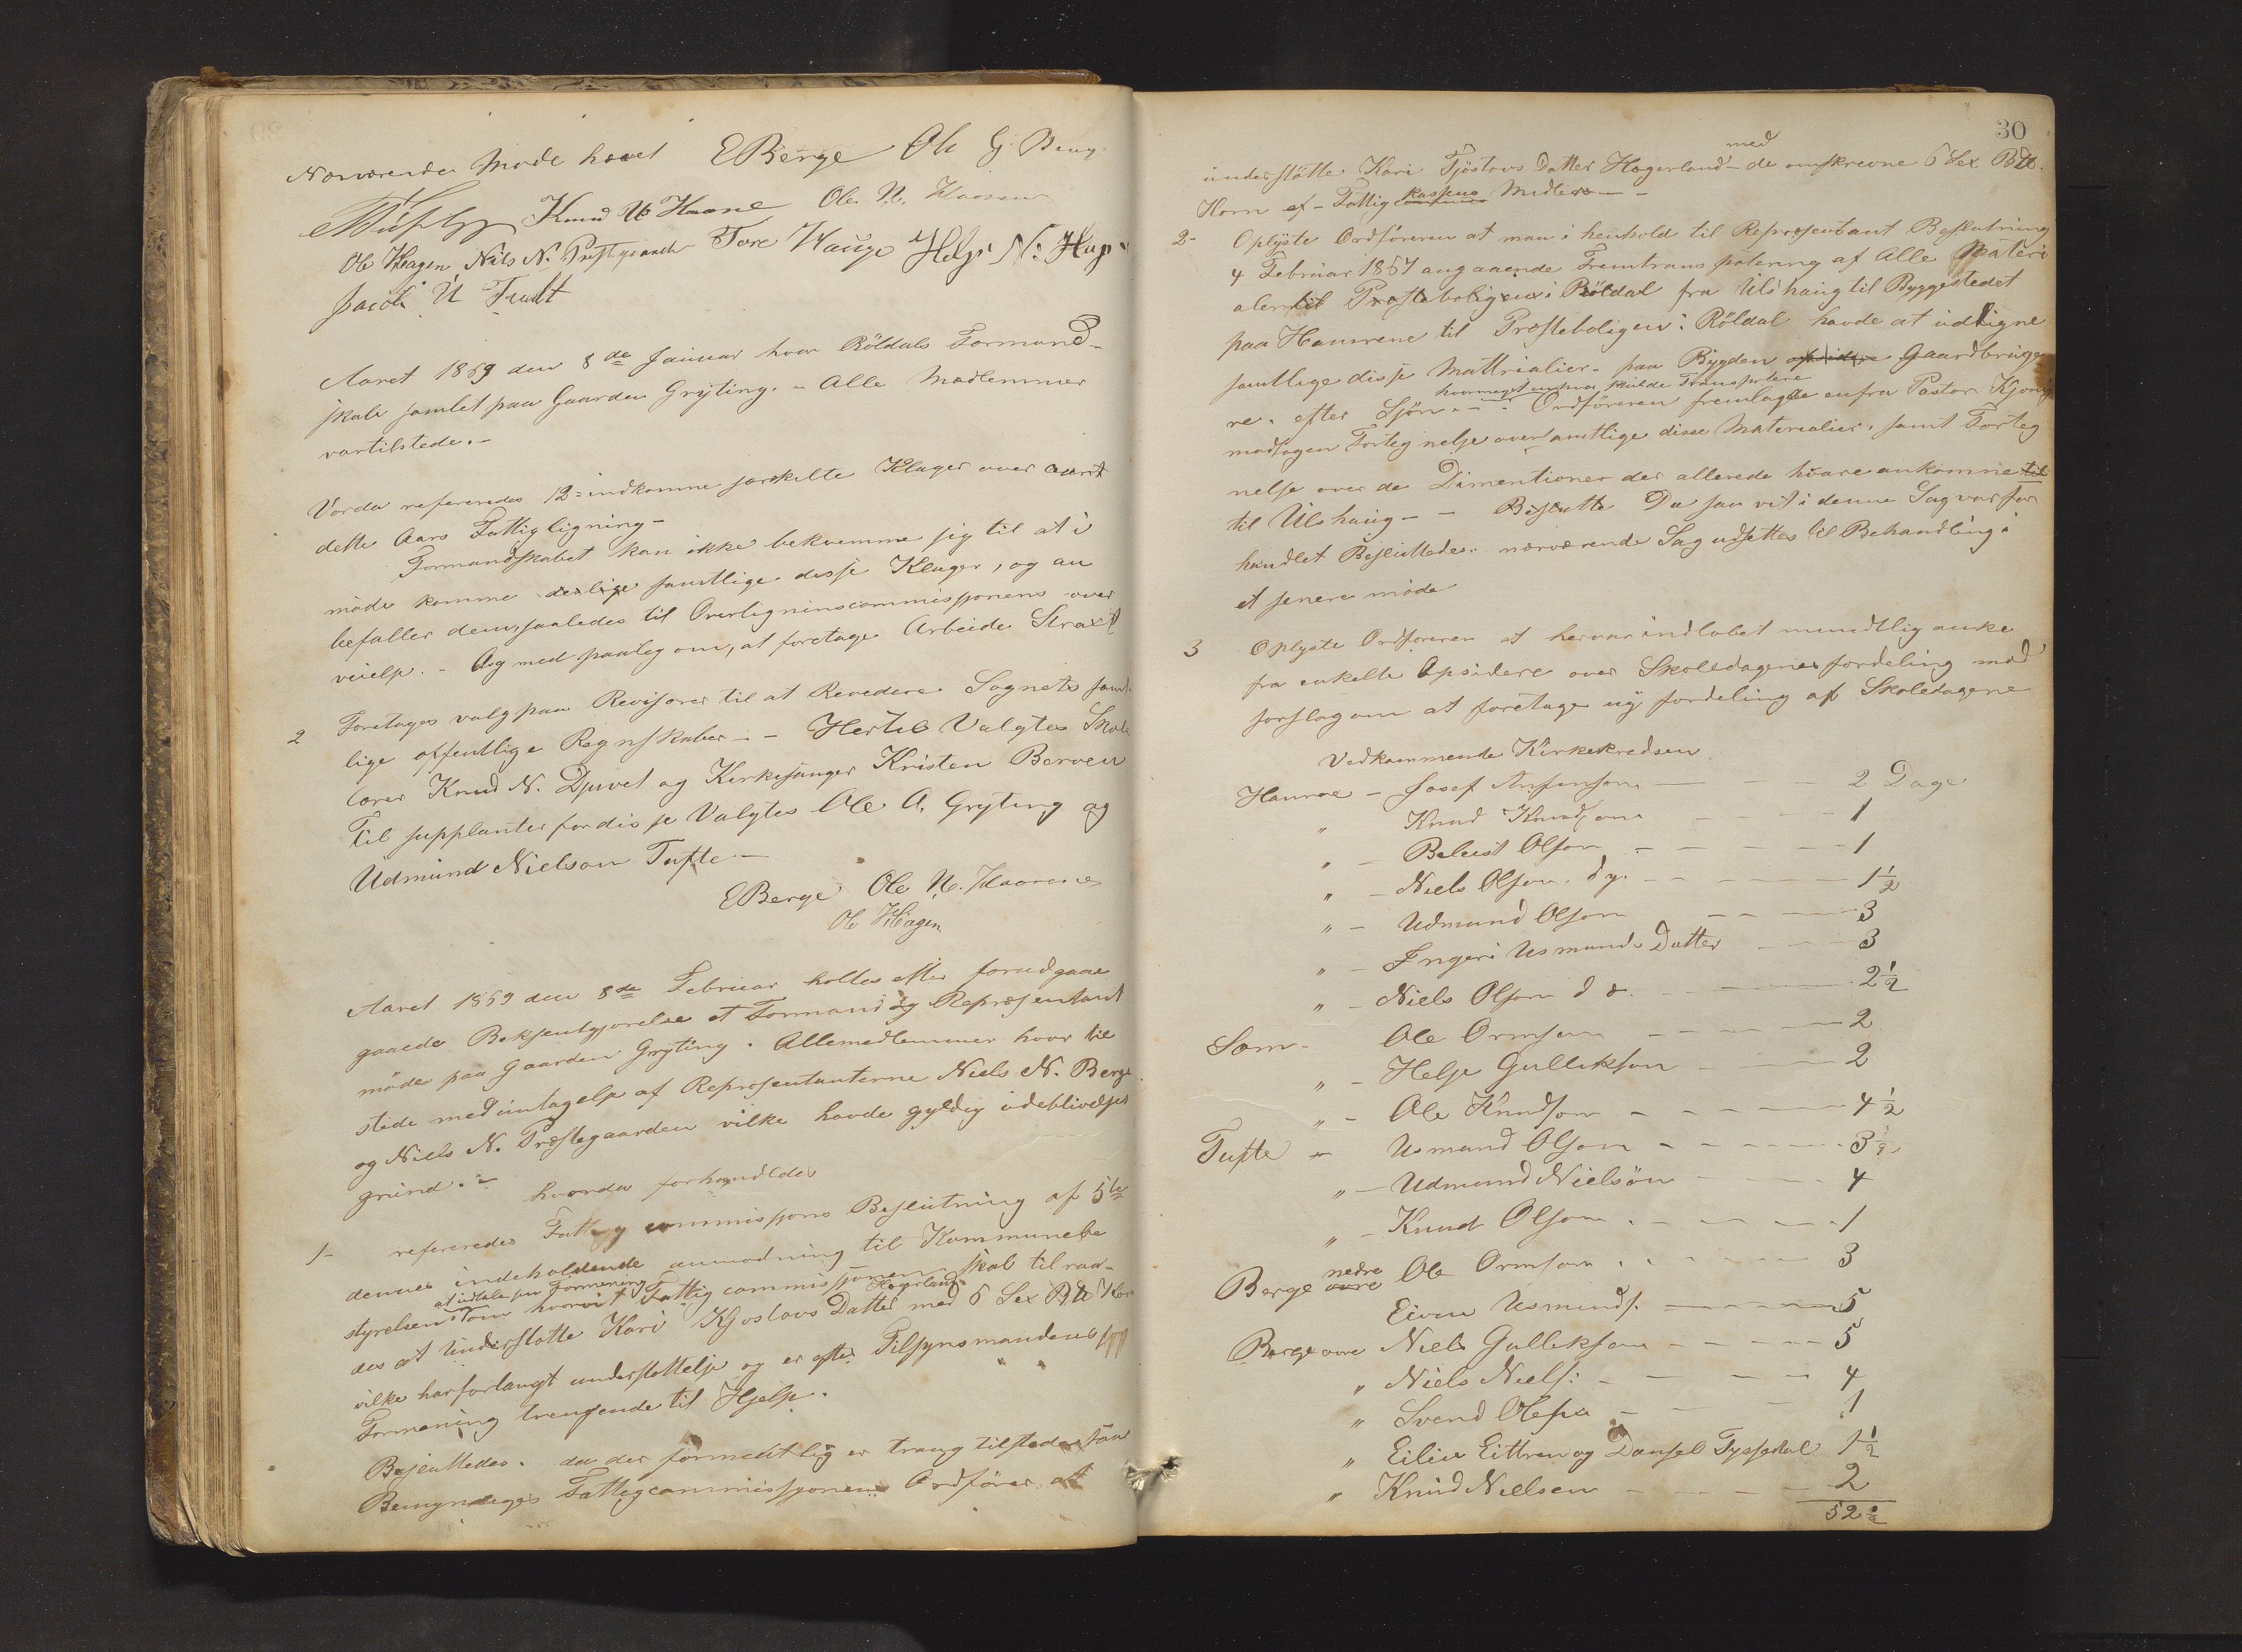 Nærværende Møde hævet EBerge Ole G. Berge
Knud N Haarene Ole N. Haarene
Ole Hagen Nils N. Præstgaard Tore Hauge Helge N. Hage
Jacob U Tveidt
Aaret 1869 den 8de Januar hvar Röldals Formand-
skab samlet paa Gaarden Grÿting. - Alle Medlemmer
vartilstede. -
Vorda refereredes 12= indkomne særskilte Klager over
dette Aars Fattigligning -
Formandskabet kan ikke bekvemme sig til at i
möde komme samtlige disse Klager, og an
befaller dem, saaledes til Overligninscommissjonens over
veielse. - Og med paaleg om, at foretage Arbeide Straxt
2 Foretages valg paa Revisorer til at Revedere Sognets samt
lige offentlige Regnskaber - - Hertil Valgtes Skole
lærer Knud N. Djuvet og Kirkesanger Kristen Berven
Til supplanter for disse Valgtes Ole A. Gryting og
Udmund Nielson Tufte -
EBerge Ole N. Haarene
Ole Hagen
Aaret 1869 den 8de Februar holtes efter forudgaae
gaaede Bekjentgjorelse et Formand og Repræsentant
möde paa Gaarden Grÿting. Allemedlemmer hvar til
stede med untagelse af Repræsentanterne Niels N. Berge
og Niels N. Præstegaarden vilke havde gyldig udeblivelses
grund. -
hvorda forhandledes
1- refereredes Fattigcommissjons Beslutning af 5te
dennes indeholdende anmodning til Kommunebe
at udtale sin Formening
styrelsen om hvorvit Fattigcommissjonen skal tilraa-
Hagerland
des at Understötte Kari Kjøstovs Datter med 6 Sex B℔ Korn
vilke har forlangt understøttelse og er efter Tilsynsmandens
Formening trengende til Hjelp.
Besluttedes. da der formentlig er trang tilstede saa
Bemyndeges Fattigcommissjonens Ordfører at
30
med
understötte Kari Tjöstovs Datter Hagerland - de omskrevne 6 Sex B℔.
Korn af - Fattig kassens Midler - -
2- Oplÿste Ordföreren at man i henhold til Representant Beslutning
4 Februar 1867 angaaende Fremtransportering af Alle Materi
aler til Præsteboligen i Röldal fra Ulshaug til Byggestedet
paa Hamrene til Præsteboligen i Röldal havde at udligne
samtlige disse Mattrialier - paa Bygden Gaardbruge
hvormeget enhver skulde Transpotere
re. efter Sjön. - Ordföreren fremlagde en fra Pastor
modtagen Forteg nelse over samtlige disse Materialier. samt Forteg
nelse over de Dimentioner der allerede hvare ankomne til
til Ulshaug - - Besluttet Da saa vit i denne Sag var for
handlet Besluttedes. nærværende Sag udsettes til Behandling i
et senere möde
3 Oplyste Ordföreren at hervar indlobet mundtlig anke
fra enkelte Opsidere over Skoledagenes fordeling med
forslag om at foretage nÿ fordeling af Skoledagene
Vedkommende Kirkekredsen
Hamrae - Josef Anfinson - 2 Dage
" Knud Knudson - 1
" - Beleist Olson - 1
" - Niels Olson. d y. - 1½
" - Udmund Olson - 3
" - Ingeri Usmunds Datter - 3
" - Niels Olson d æ. - 2½
Ole Ormson - 2
" - Helje Gullikson - 2
" - Ole Knudson - 4½
Tufte - Usmund Olson - 3½
" - Udmund Nielsön - 4
" - Knud Olson - 1
Berge nedre Ole Ormson - 3
Eivin Usmunds. - 5
Berge ovre Niels Gullikson - 5
" Niels Niels: - 4
" Svend Olesen - 1
" Eilin Eittren og Daniel Tyssedal 1½
" Knud Nielsen - 2
52½